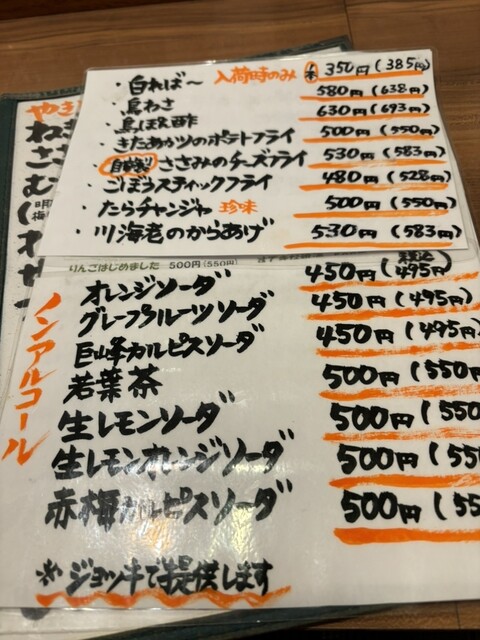 ・白ればー 入荷時のみ 本350円(385円)
・鳥わさ 580円(638円)
・鳥ぽん酢 630円(693円)
・きたあかりのポテトフライ 500円(550円)
・自家製 ささみのチーズフライ 530円(583円)
・ごぼうスティックフライ 480円(528円)
・たらチャンジャ 珍味 500円(550円)
・川海老のからあげ 530円(583円)
りんごはじめました 500円(550円)
ノンアルコール
税込
オレンジソーダ 450円(495円)
グレープフルーツソーダ 450円(495円)
巨峰カルピスソーダ 450円(495円)
若葉茶 500円(550円
生レモンソーダ 500円(550
生レモンオレンジソーダ 500円(550
赤梅カルピスソーダ 500円(55
※ジョッキで提供します